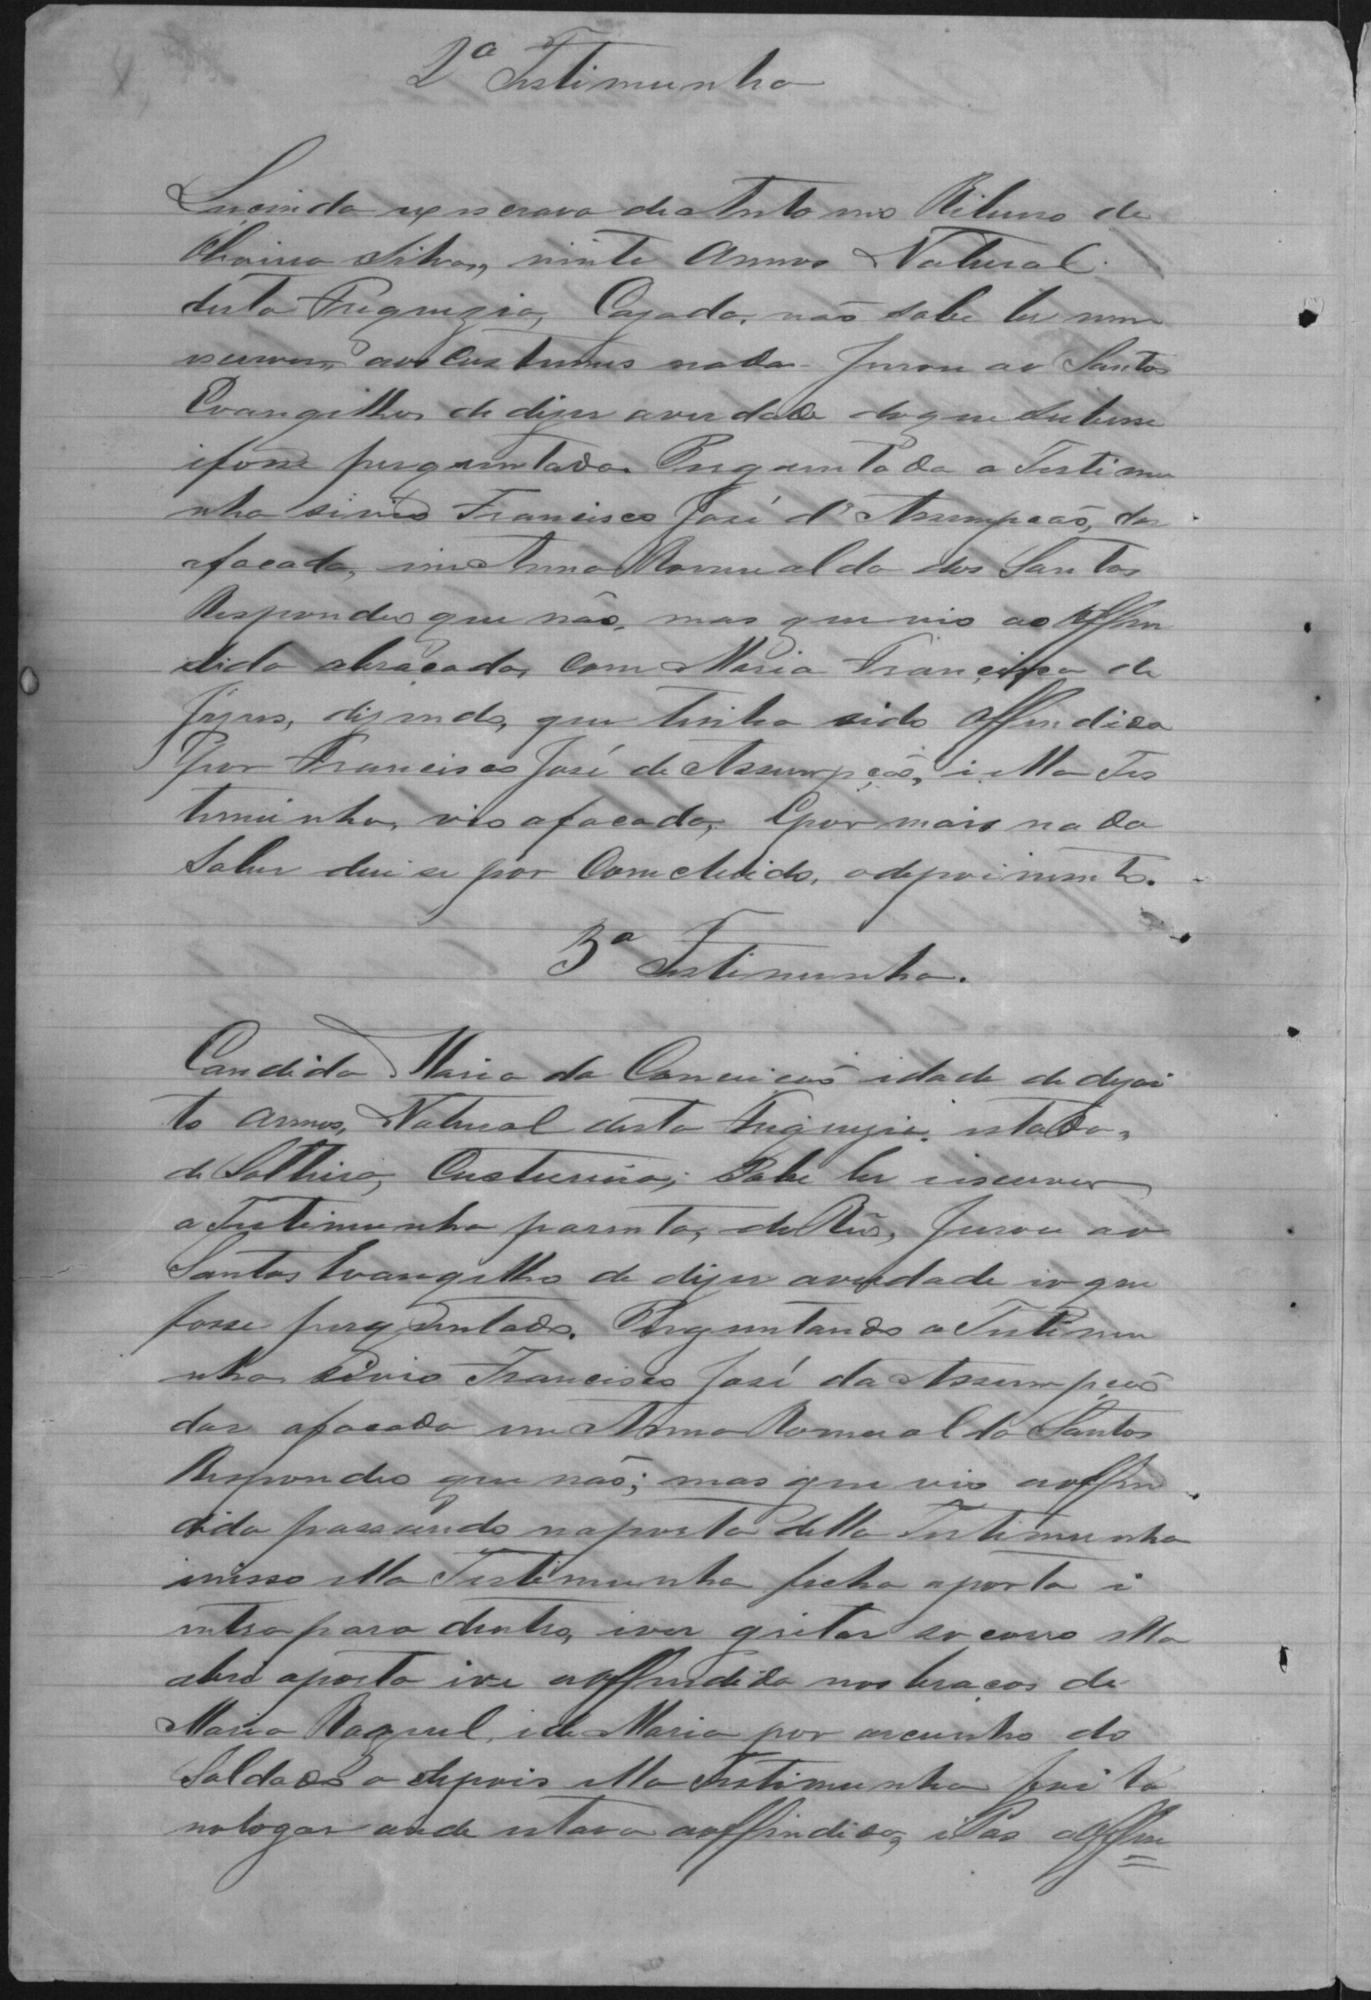 2ª Testimunha
Lucinda ex escrava de Antonio Ribeiro de
Oliveira Silva, vinte annos Natural
desta Freguezia, Cazada, não sabe ler nem
escrever, aos Custumes nada. Jurou ao Santos
Evangelhos de dizer a verdade do que subesse
i fosse perguntada. Perguntada a Testimu
nha si vio Francisco José d'Assumpcaõ, dar
afacada, im Anna Romualda dos Santos
Respondeo que não, mas que vio ao offen
dida abracada, com Maria Francisca de
Jezus, dizendo, que tinha sido offindida
Por Francisco José de Assumpçaõ, i ella Tes
timunha, vio afacada, E por mais nada
Saber deu se por Comcluido, o depoimento.
3ª Testimunha.
Candida Maria da Conceicaõ idade de dezoi
to annos, Natural desta Freguezia, estado,
de Solteira, Custureira, Sabe ler i escrever
a Testimunha parenta, do Réo, Jurou ao
Santos Evangelho de dizer averdade i o que
fosse perguntado. Perguntando a Testimu
nha si vio Francisco José da Assumpçaõ
dar afacada im Anna Romualda Santos
Respondeo que naõ; mas que vio a offen
dida passando naporta della Testimunha
i nisso ella Testimunha fecha aporta i
entra para dentro, i ver gritar socorro ella
abri aporta i ve a offendida nos bracos de
Maria Raquel, i de Maria por arcunha do
Saldado a depois ella Testimunha foi la
nologar onde estava a offindida, i offen